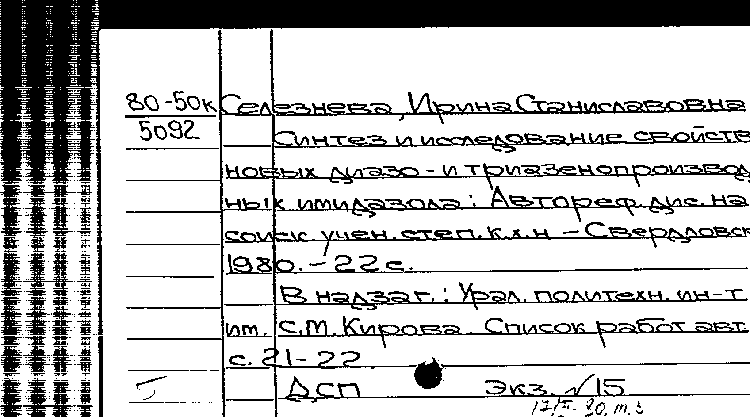 80-50к Селезнева, Ирина Станиславовна
5092 Синтез и исследование свойств
новых диазо- и триазенопроизвод
ных имидазола: Автореф. дис. на
соиск. учен. степ. к.х.н – Свердловск
1980. – 22 с.
В надзаг.: Урал. политехн. ин-т
им. С.М. Кирова. Список работ авт.
с. 21-22
ДСП Экз. №15